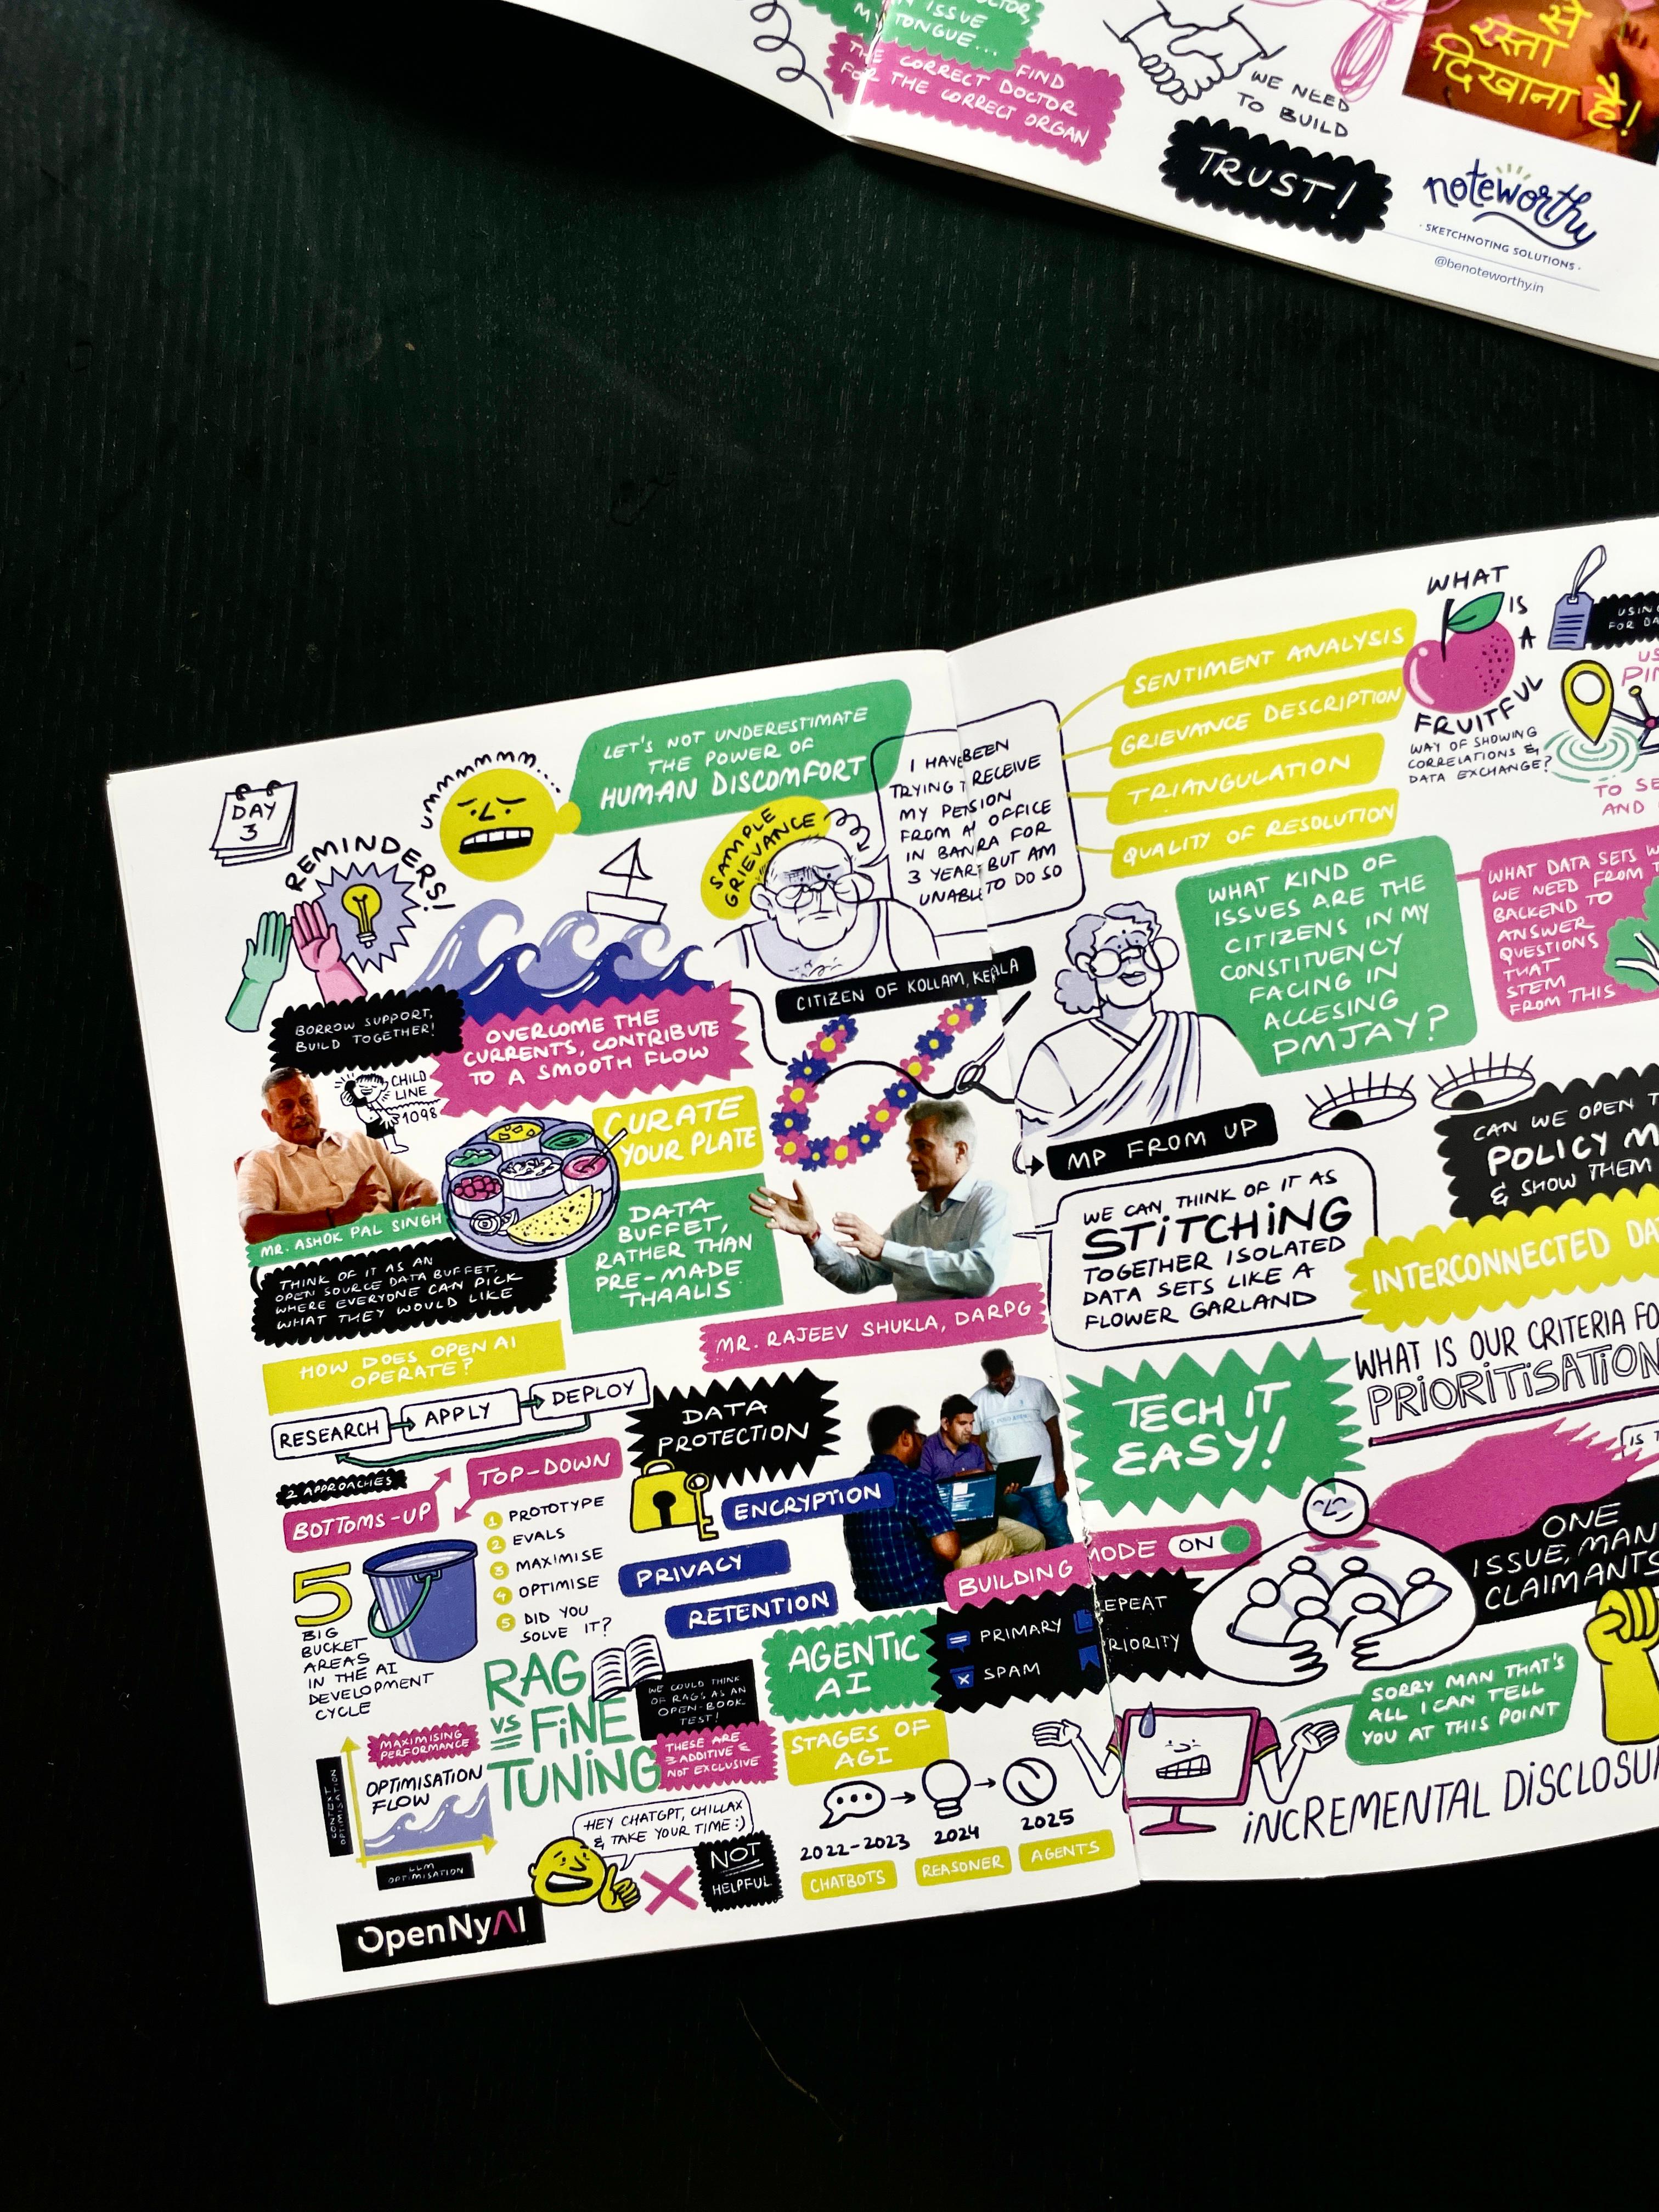 MY
ISSUE
TONGUE...
FIND
THE CORRECT DOCTOR
FOR THE CORRECT ORGAN
WE NEED
TO BUILD
TRUST!
से
रस्ता
दिखाना है!
noteworthy
· SKETCHNOTING SOLUTIONS ·
@benoteworthy.in
DAY
3
REMINDERS!
BORROW SUPPORT,
BUILD TOGETHER!
ummmmmm...
LET'S NOT UNDERESTIMATE
THE POWER OF
HUMAN DISCOMFORT
OVERCOME THE
CURRENTS, CONTRIBUTE
TO A SMOOTH FLOW
SAMPLE
GRIEVANCE
I HAVE BEEN
TRYING T RECEIVE
MY PESION
FROM A OFFICE
IN BANRA FOR
3 YEAR BUT AM
UNABL TO DO SO
CITIZEN OF KOLLAM, KERALA
CHILD
LINE
1098
MR. ASHOK PAL SINGH
THINK OF IT AS AN
OPEN SOURCE DATA BUFFET,
WHERE EVERYONE CAN PICK
WHAT THEY WOULD LIKE
CURATE
YOUR PLATE
DATA
BUFFET,
RATHER THAN
PRE-MADE
THAALIS
MR. RAJEEV SHUKLA, DARPG
HOW DOES OPEN AI
OPERATE?
RESEARCH
APPLY
DEPLOY
2 APPROACHES
BOTTOMS-UP
TOP-DOWN
5
BIG
BUCKET
AREAS
IN THE AI
DEVELOPMENT
CYCLE
1 PROTOTYPE
2 EVALS
3 MAXIMISE
4 OPTIMISE
5 DID YOU
SOLVE IT?
DATA
PROTECTION
ENCRYPTION
PRIVACY
RETENTION
RAG
VS
FINE
TUNING
WE COULD THINK
OF RAGS AS AN
OPEN-BOOK
TEST!
THESE ARE
ADDITIVE &
NOT EXCLUSIVE
MAXIMISING
PERFORMANCE
OPTIMISATION
FLOW
CONTEXT
OPTIMISATION
LLM
OPTIMISATION
HEY CHATGPT, CHILLAX
& TAKE YOUR TIME :)
NOT
HELPFUL
OpenNyAI
BUILDING
MODE ON
AGENTIC
AI
PRIMARY
SPAM
EPEAT
PRIORITY
STAGES OF
AGI
2022-2023
2024
2025
CHATBOTS
REASONER
AGENTS
SENTIMENT ANALYSIS
GRIEVANCE DESCRIPTION
TRIANGULATION
QUALITY OF RESOLUTION
WHAT
IS
A
FRUITFUL
WAY OF SHOWING
CORRELATIONS &
DATA EXCHANGE?
USING
FOR DA
US
PIN
TO SE
AND
WHAT KIND OF
ISSUES ARE THE
CITIZENS IN MY
CONSTITUENCY
FACING IN
ACCESING
PMJAY?
WHAT DATA SETS W
WE NEED FROM T
BACKEND TO
ANSWER
QUESTIONS
THAT
STEM
FROM THIS
MP FROM UP
WE CAN THINK OF IT AS
STITCHING
TOGETHER ISOLATED
DATA SETS LIKE A
FLOWER GARLAND
CAN WE OPEN T
POLICY M
& SHOW THEM
INTERCONNECTED DA
TECH IT
EASY!
WHAT IS OUR CRITERIA FO
PRIORITISATION
IS T
ONE
ISSUE, MAN
CLAIMANTS
SORRY MAN THAT'S
ALL I CAN TELL
YOU AT THIS POINT
INCREMENTAL DISCLOSU